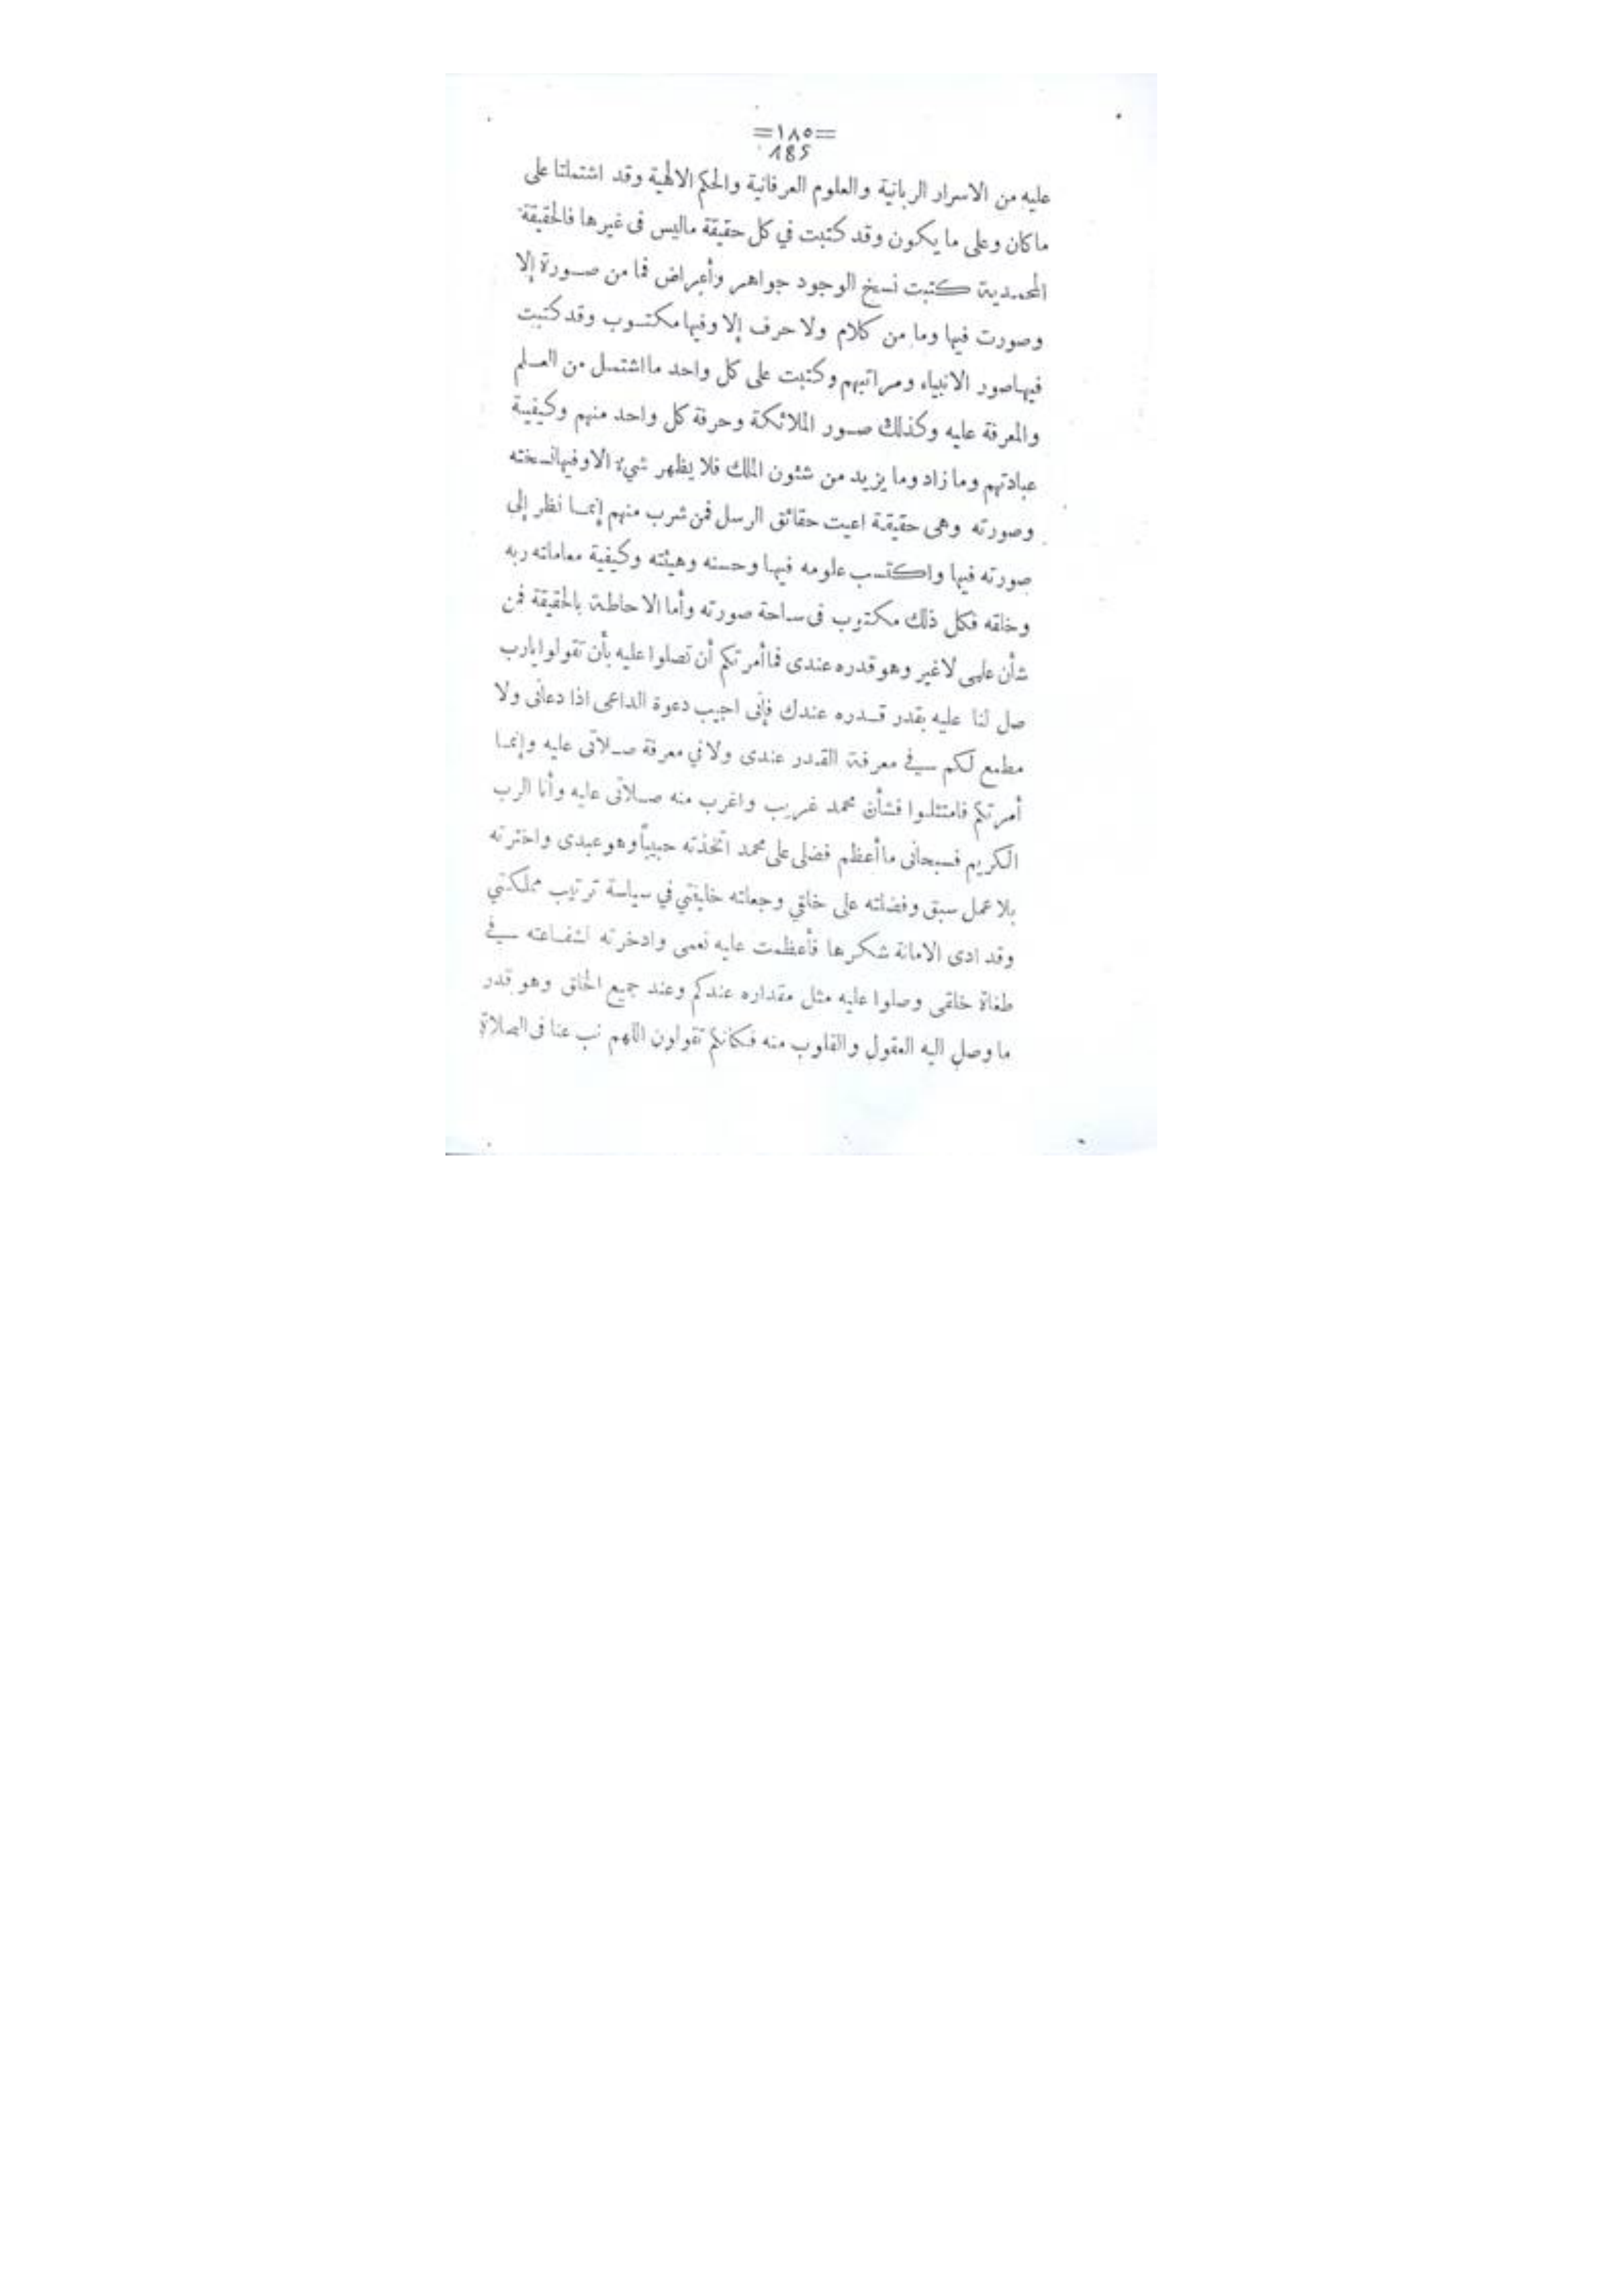 =١٨٥=
185
عليه من الاسرار الربانية والعلوم العرفانية والحكم الالهية وقد اشتملتا على
ماكان وعلى ما يكون وقد كتبت في كل حقيقة ماليس فى غيرها فالحقيقة
المحمدية كتبت نسخ الوجود جواهر وأعراض فما من صورة إلا
وصورت فيها وما من كلام ولا حرف إلا وفيها مكتوب وقد كتبت
فيها صور الانبياء ومراتبهم وكتبت على كل واحد ما اشتمل من العلم
والمعرفة عليه وكذلك صور الملائكة وحرفة كل واحد منهم وكيفية
عبادتهم وما زاد وما يزيد من شئون الملك فلا يظهر شيء الا وفيها نسخته
وصورته وهى حقيقة اعيت حقائق الرسل فمن شرب منهم إنما نظر إلى
صورته فيها واكتسب علومه فيها وحسنه وهيئته وكيفية معاملته ربه
وخلقه فكل ذلك مكتوب فى ساحة صورته وأما الاحاطة بالحقيقة فمن
شأن علمى لاغير وهو قدره عندى فما أمرتكم أن تصلوا عليه بأن تقولوا يارب
صل لنا عليه بقدر قدره عندك فإنى اجيب دعوة الداعى اذا دعانى ولا
مطمع لكم في معرفة القدر عندى ولا في معرفة صلاتى عليه وإنما
أمرتكم فامتثلوا فشأن محمد غريب واغرب منه صلاتى عليه وأنا الرب
الكريم فسبحانى ما أعظم فضلى على محمد اتخذته حبيباً وهو عبدى واخترته
بلا عمل سبق وفضلته على خلقي وجعلته خليفتي في سياسة ترتيب مملكتي
وقد ادى الامانة شكرها فأعظمت عليه نعمى وادخرته لشفاعته في
طغاة خلقى وصلوا عليه مثل مقداره عندكم وعند جميع الخلق وهو قدر
ما وصل اليه العقول والقلوب منه فكانكم تقولون اللهم نب عنا فى الصلاة